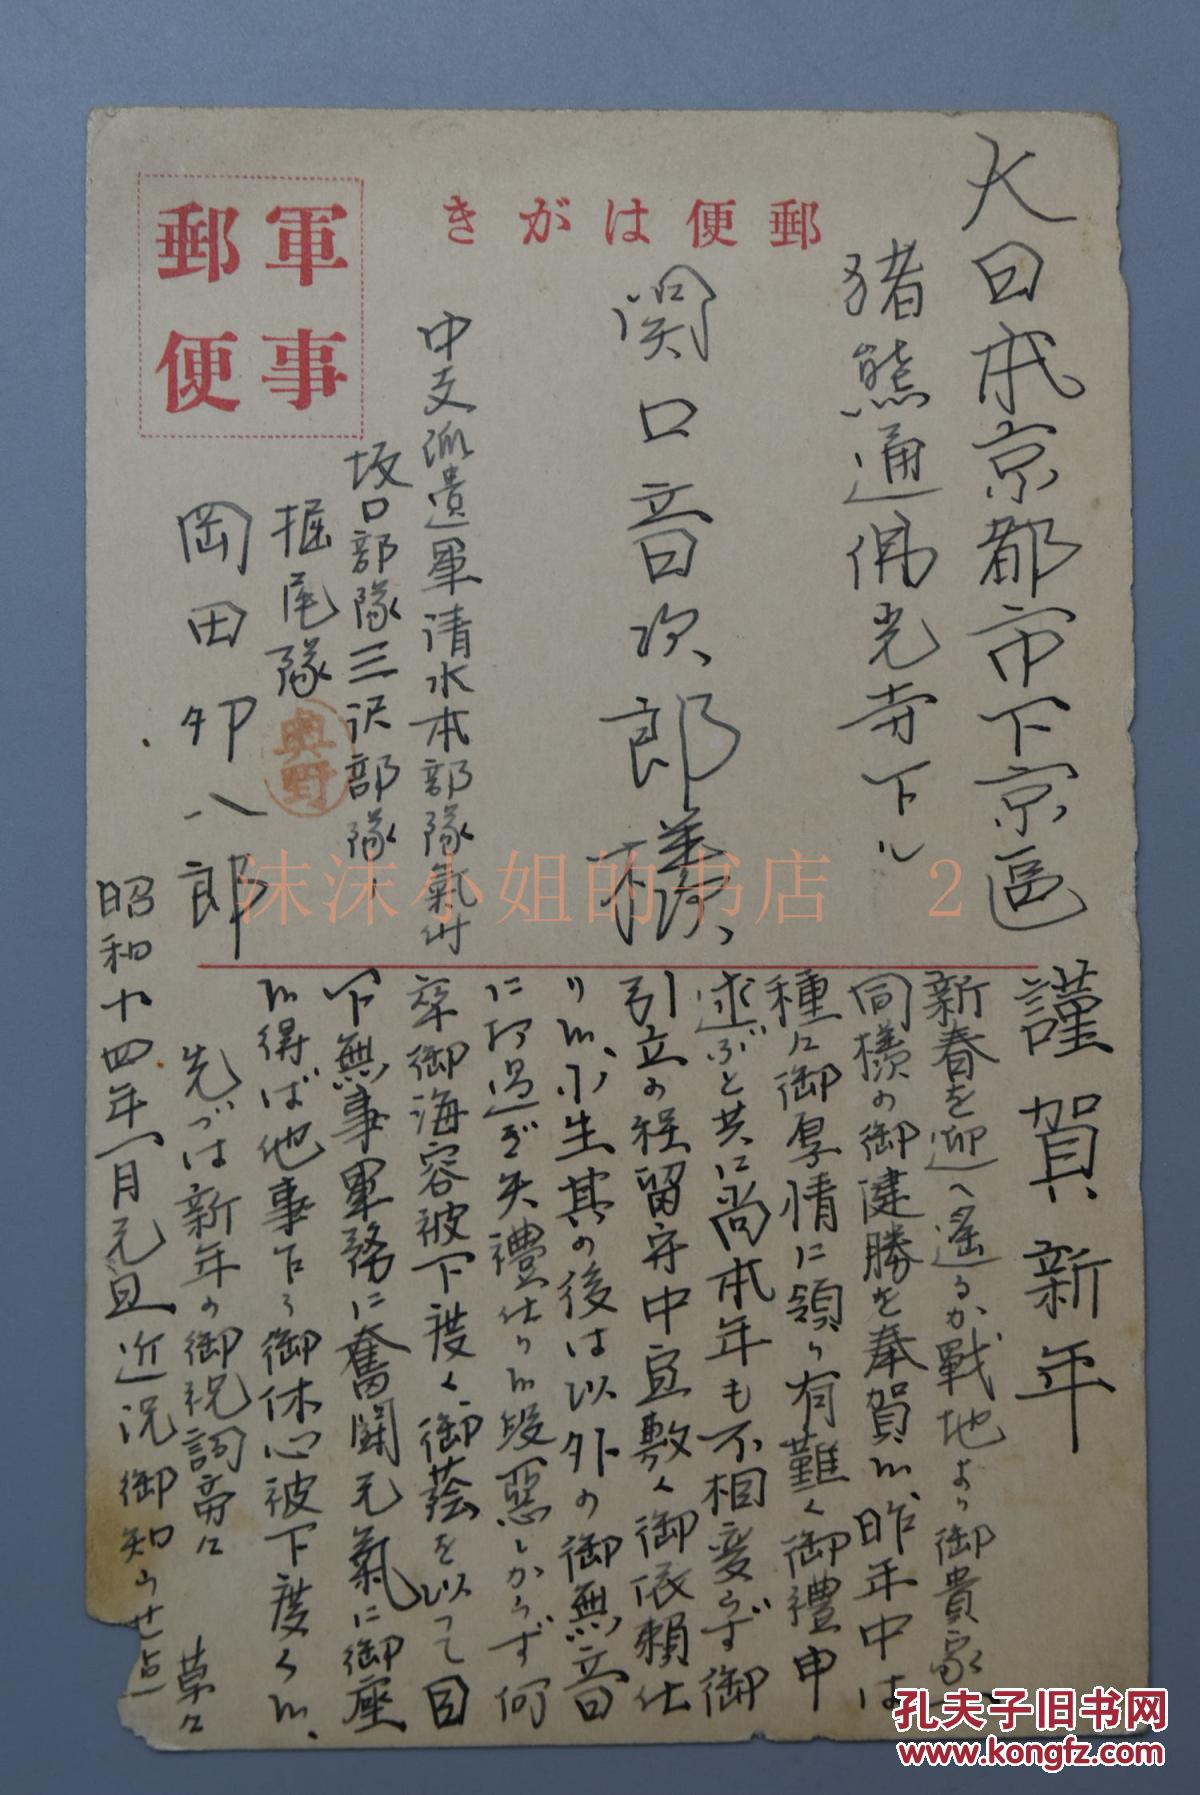 郵便はがき
軍事
郵便
大日本京都市下京區
猪熊通佛光寺下ル
関口音次郎様
中支派遣軍清水本部隊氣付
坂口部隊三沢部隊
堀尾隊
岡田卯八郎
奥野
謹賀新年
新春を迎へ遙るか戰地より御貴家一
同様の御健勝を奉賀候、昨年中は
種々御厚情に預り有難く御禮申
述ぶと共に尚本年も不相変らず御
引立の程留守中宜敷く御依頼仕
り候、小生其の後は以外の御無音
に打過ぎ失禮仕り候段悪しからず何
卒御海容被下度く、御蔭を以って目
下無事軍務に奮闘元氣に御座
候得ば他事乍ら御休心被下度く候、
先づは新年の御祝詞旁々
近況御知らせ迠
草々
昭和十四年一月元旦
沫沫小姐的书店 2
孔夫子旧书网
www.kongfz.com